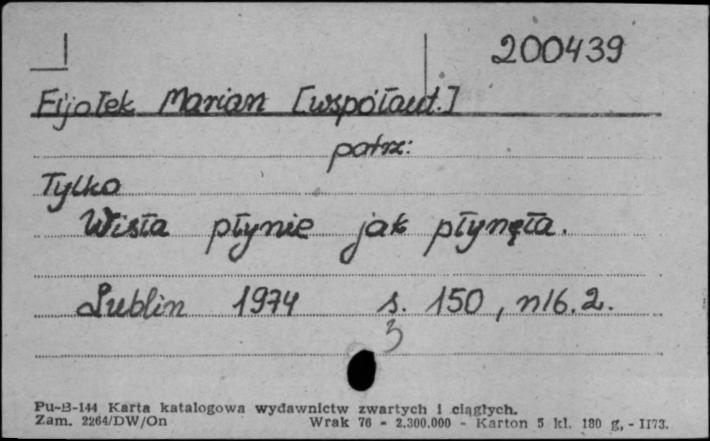 200439
Fijołek Marian [współaut.]
patrz:
Tylko
Wisła płynie jak płynęła.
Lublin 1974 s. 150, nlb. 2.
3
Pu-B-144 Karta katalogowa wydawnictw zwartych i ciągłych.
Zam. 2264/DW/On Wrak 76 - 2.300.000 - Karton 5 kl. 180 g, - II73.